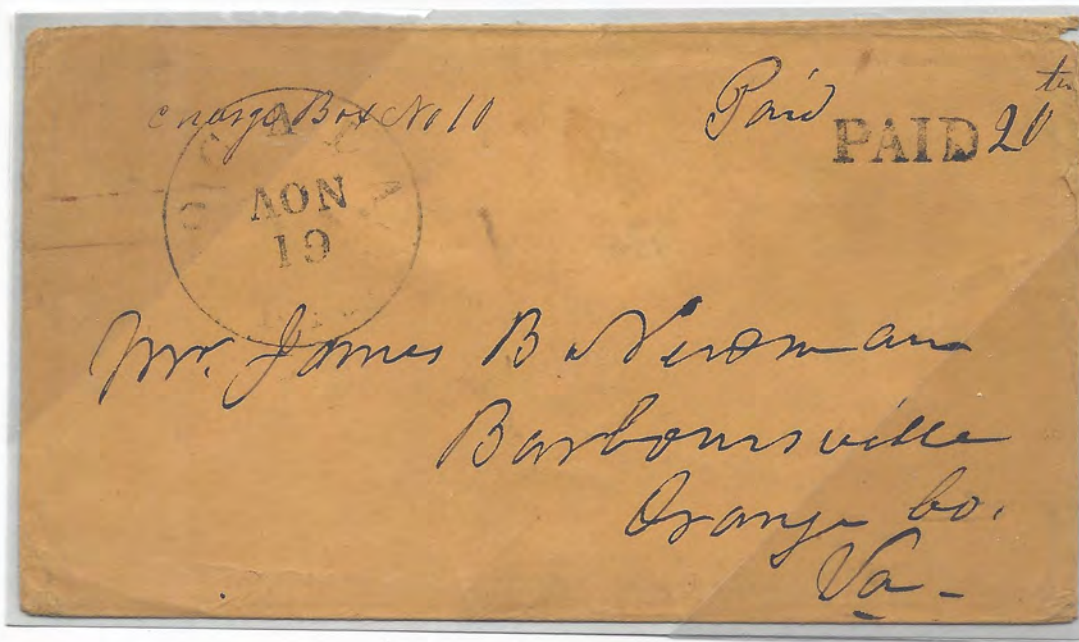 charge Box No 10
Paid
PAID 20
OCALA
NOV
19
Mr. James B Newman
Barboursville
Orange Co.
Va -